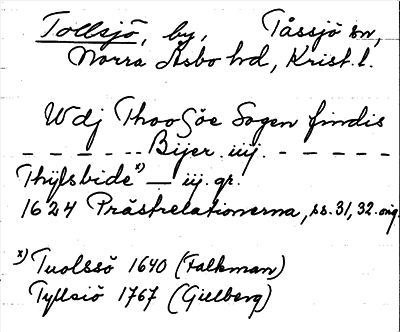 Tollsjö, by, Tåssjö sn,
Norra Åsbo hd, Krist. l.
Wdj Thoosöe Sogen findis
- - - - - - Bijer. iiij. - - - - -
Thijlsbide x) — iij. gr.
1624 Prästrelationerna, ss. 31, 32. orig.
x) Tuolssö 1640 (Falkman)
Tyllsiö 1767 (Gillberg)